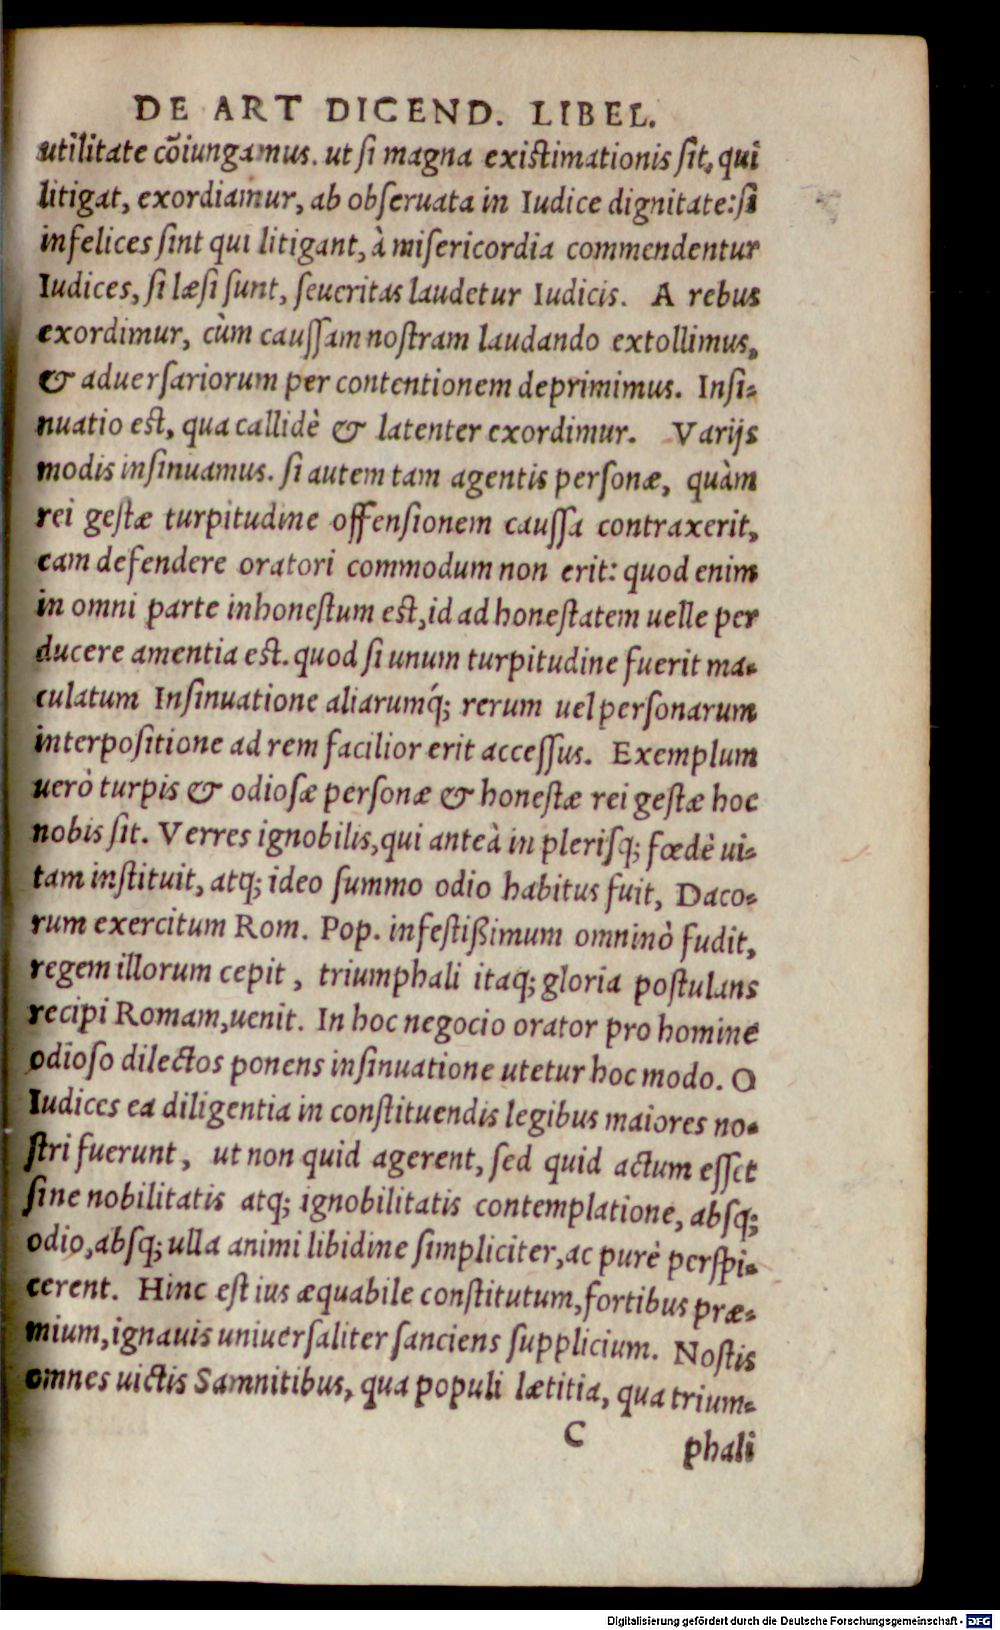 DE ART DICEND. LIBEL.
utilitate cõiungamus. ut si magna existimationis sit, qui
litigat, exordiamur, ab obseruata in Iudice dignitate: si
infelices sint qui litigant, à misericordia commendentur
Iudices, si læsi sunt, seueritas laudetur Iudicis. A rebus
exordimur, cùm caussam nostram laudando extollimus,
& aduersariorum per contentionem deprimimus. Insi-
nuatio est, qua callidè & latenter exordimur. Varijs
modis insinuamus. si autem tam agentis personæ, quàm
rei gestæ turpitudine offensionem caussa contraxerit,
eam defendere oratori commodum non erit: quod enim
in omni parte inhonestum est, id ad honestatem uelle per
ducere amentia est. quod si unum turpitudine fuerit ma-
culatum Insinuatione aliarumq́; rerum uel personarum
interpositione ad rem facilior erit accessus. Exemplum
uerò turpis & odiosæ personæ & honestæ rei gestæ hoc
nobis sit. Verres ignobilis, qui anteà in plerisq; fœdè ui-
tam instituit, atq; ideo summo odio habitus fuit, Daco-
rum exercitum Rom. Pop. infestißimum omninò fudit,
regem illorum cepit, triumphali itaq; gloria postulans
recipi Romam, uenit. In hoc negocio orator pro homine
odioso dilectos ponens insinuatione utetur hoc modo. O
Iudices ea diligentia in constituendis legibus maiores no-
stri fuerunt, ut non quid agerent, sed quid actum esset
sine nobilitatis atq; ignobilitatis contemplatione, absq;
odio, absq; ulla animi libidine simpliciter, ac purè perspi-
cerent. Hinc est ius æquabile constitutum, fortibus præ-
mium, ignauis uniuersaliter sanciens supplicium. Nostis
omnes uictis Samnitibus, qua populi lætitia, qua trium-
C phali
Digitalisierung gefördert durch die Deutsche Forschungsgemeinschaft - DFG